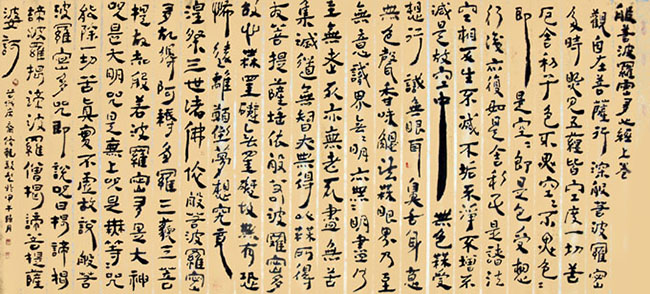 般若波羅密多心經上卷
觀自在菩薩行深般若波羅密
多時照見五蘊皆空度一切苦
厄舍利子色不異空空不異色色
即是空空即是色受想
行識亦復如是舍利子是諸法
空相不生不滅不垢不淨不增不
減是故空中無色無受
想行識無眼耳鼻舌身意
無色聲香味觸法無眼界乃至
無意識界無無明亦無無明盡乃
至無老死亦無老死盡無苦
集滅道無智亦無得以無所得
故菩提薩埵依般若波羅密多
故心無罣礙無罣礙故無有恐
怖遠離顛倒夢想究竟
涅槃三世諸佛依般若波羅密
多故得阿耨多羅三藐三菩
提故知般若波羅密多是大神
咒是大明咒是無上咒是無等等咒
能除一切苦真實不虛故說般若
波羅密多咒即說咒曰揭諦揭
諦波羅揭諦波羅僧揭諦菩提薩
婆訶